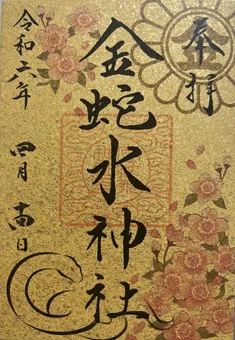 奉拝
金蛇水神社
令和六年
四月